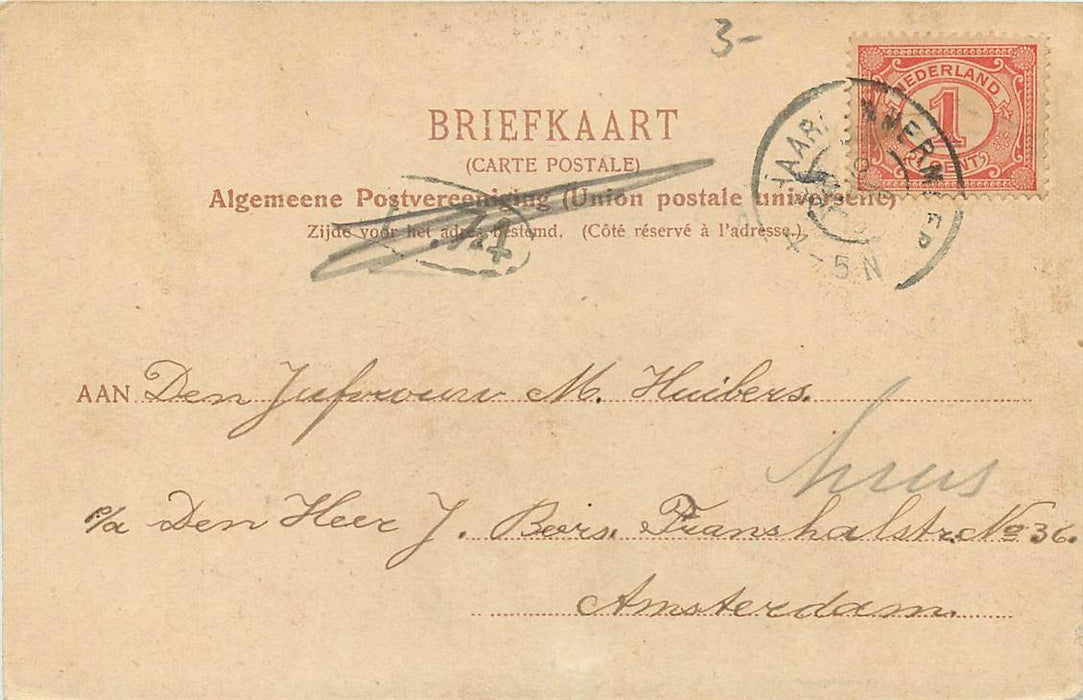 3-
NEDERLAND
1
CENT
BRIEFKAART
(CARTE POSTALE)
Algemeene Postvereeniging (Union postale universelle)
Zijde voor het adres bestemd. (Côté réservé à l'adresse.)
5 N
AAN Den Jufvrouw M. Huibers.
p/a Den Heer J. Beirs. Franshalstr. No 36.
Amsterdam.